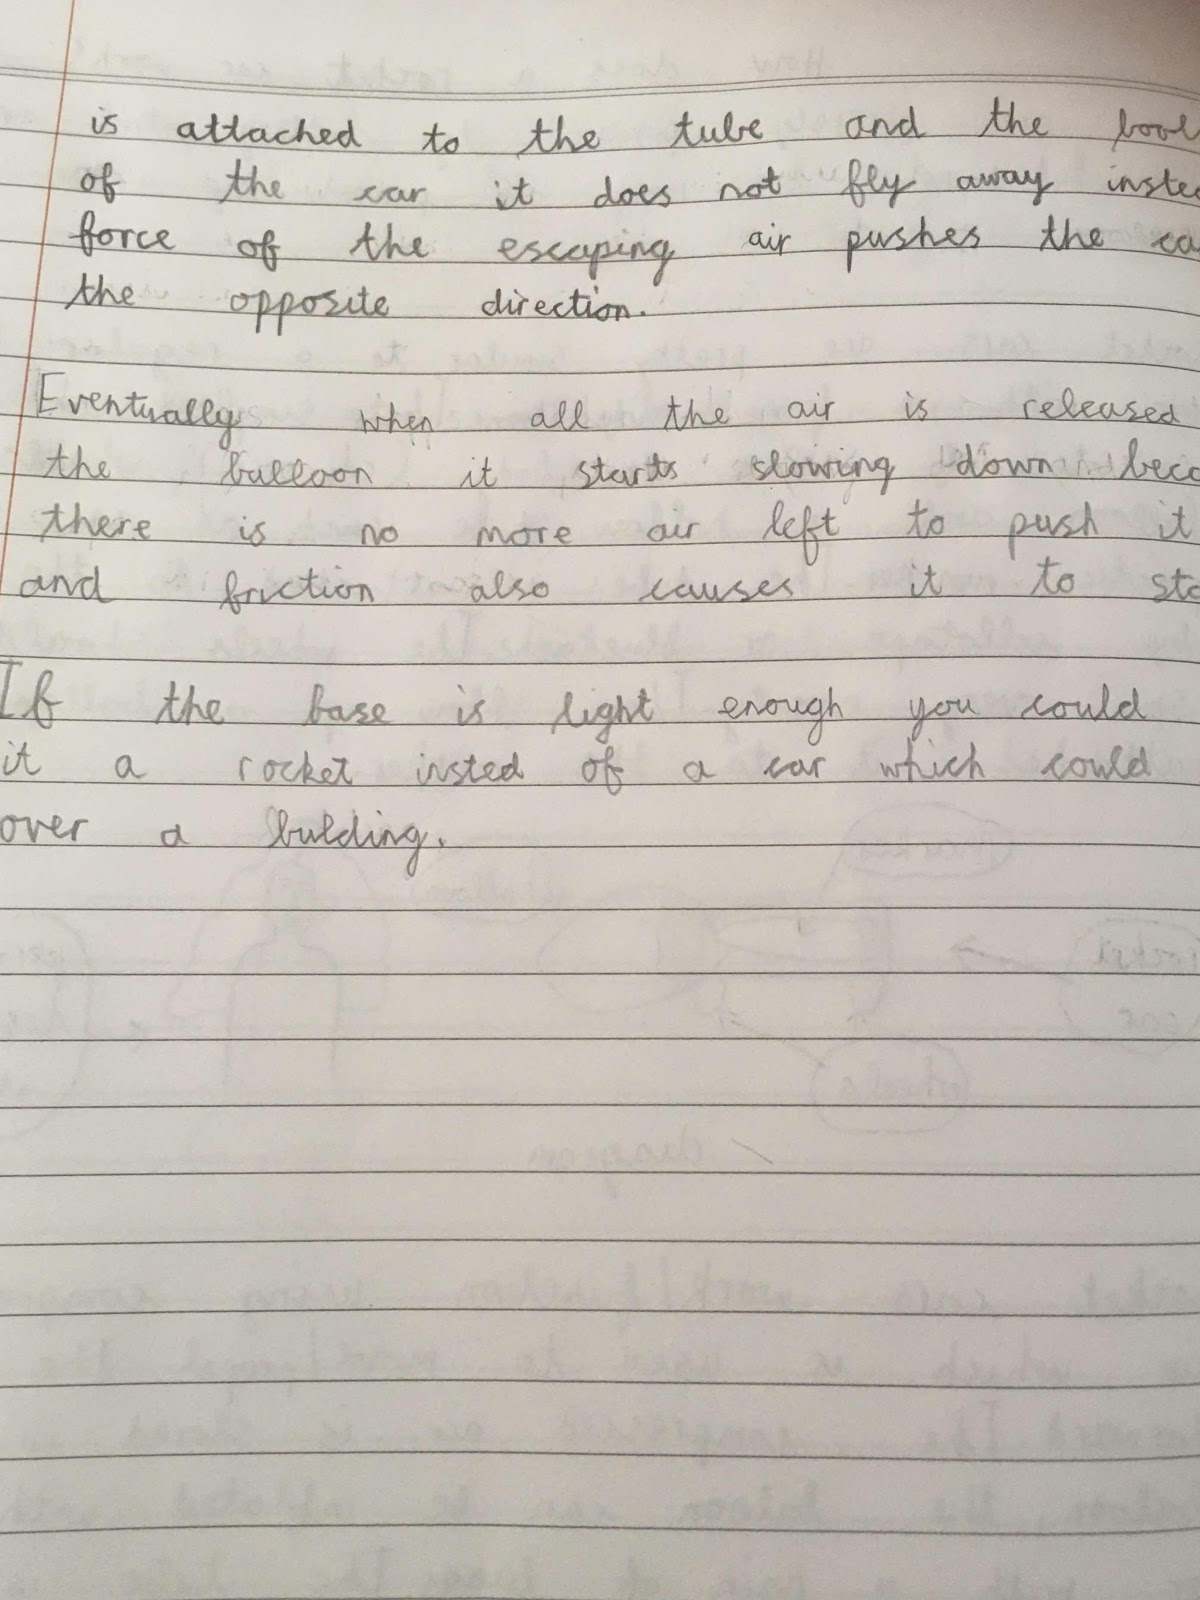 is attached to the tube and the
of the car it does not fly away
force of the escaping air pushes the
the opposite direction.
Eventually when all the air is released
the balloon it starts slowing down
there is no more air left to push it
and friction also causes it to
If the base is light enough you could
it a rocket insted of a car which could
over a bulding.